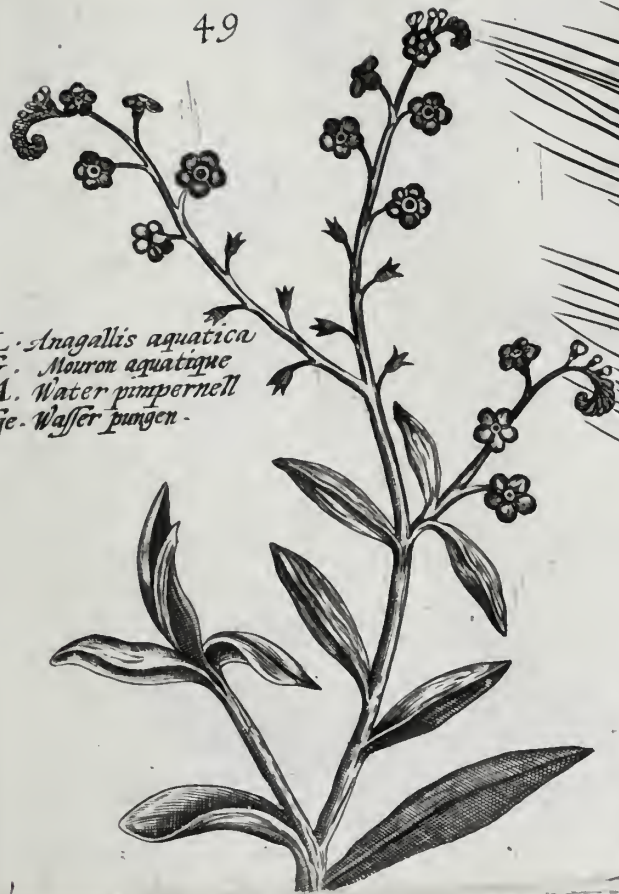 49
L. Anagallis aquatica
G. Mouron aquatique
A. Water pimpernell
Ge. Waſſer pungen.